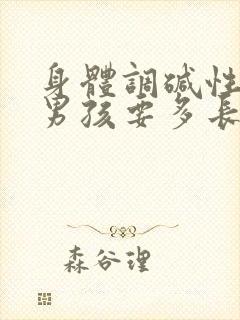 身體調碱性
男孩要多長
森谷理